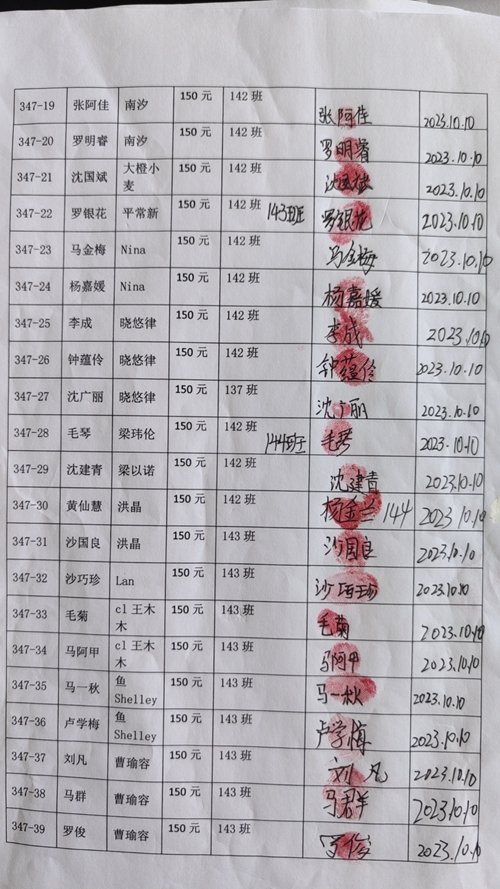 347-19 张阿佳 南汐 150 元 142 班 张阿佳 2023.10.10
347-20 罗明睿 南汐 150 元 142 班 罗明睿 2023.10.10
347-21 沈国斌 大橙小麦 150 元 142 班 沈国斌 2023.10.10
347-22 罗银花 平常新 150 元 142 班 143班 罗银花 2023.10.10
347-23 马金梅 Nina 150 元 142 班 马金梅 2023.10.10
347-24 杨嘉媛 Nina 150 元 142 班 杨嘉媛 2023.10.10
347-25 李成 晓悠律 150 元 142 班 李成 2023.10.10
347-26 钟蕴伶 晓悠律 150 元 142 班 钟蕴伶 2023.10.10
347-27 沈广丽 晓悠律 150 元 137 班 沈广丽 2023.10.10
347-28 毛琴 梁玮伦 150 元 142 班 144班 毛琴 2023.10.10
347-29 沈建青 梁以诺 150 元 142 班 沈建青 2023.10.10
347-30 黄仙慧 洪晶 150 元 142 班 杨金兰 144 2023.10.10
347-31 沙国良 洪晶 150 元 143 班 沙国良 2023.10.10
347-32 沙巧珍 Lan 150 元 143 班 沙巧珍 2023.10.10
347-33 毛菊 cl 王木木 150 元 143 班 毛菊 2023.10.10
347-34 马阿甲 cl 王木木 150 元 143 班 马阿甲 2023.10.10
347-35 马一秋 鱼 Shelley 150 元 143 班 马一秋 2023.10.10
347-36 卢学梅 鱼 Shelley 150 元 143 班 卢学梅 2023.10.10
347-37 刘凡 曹瑜容 150 元 143 班 刘凡 2023.10.10
347-38 马群 曹瑜容 150 元 143 班 马群 2023.10.10
347-39 罗俊 曹瑜容 150 元 143 班 罗俊 2023.10.10